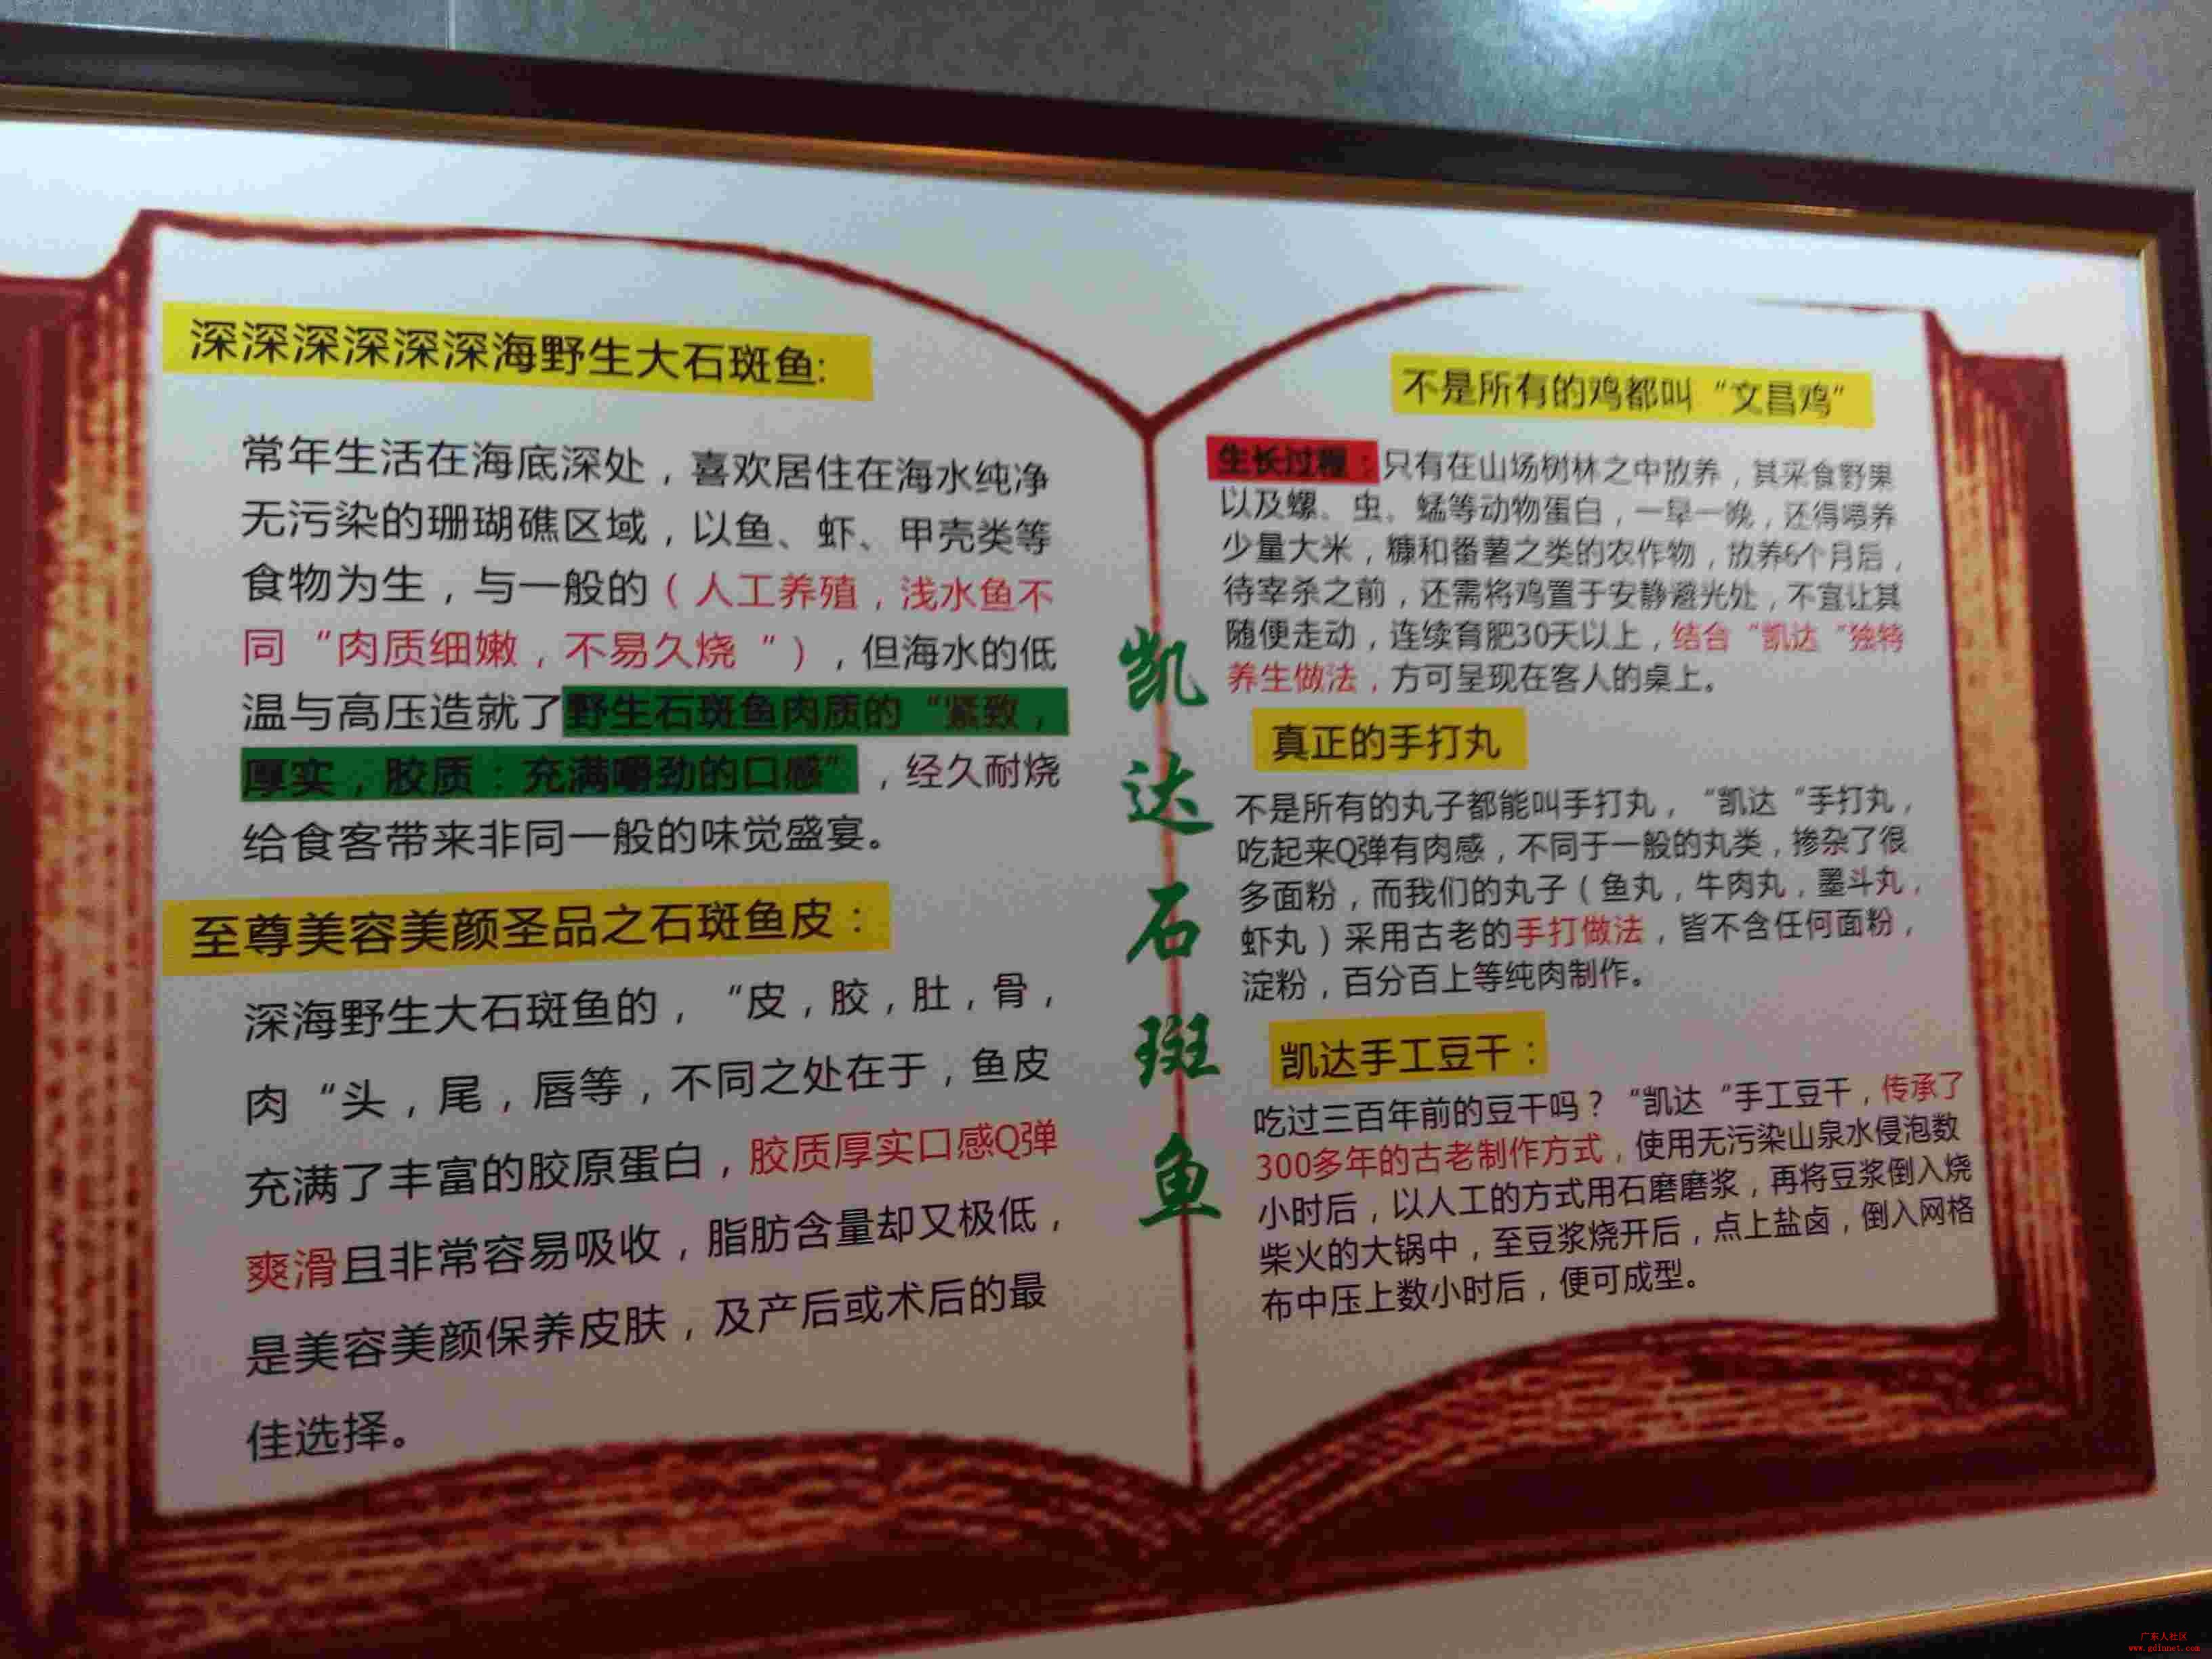 深深深深深深海野生大石斑鱼:
常年生活在海底深处，喜欢居住在海水纯净
无污染的珊瑚礁区域，以鱼、虾、甲壳类等
食物为生，与一般的（人工养殖，浅水鱼不
同“肉质细嫩，不易久烧 ”），但海水的低
温与高压造就了野生石斑鱼肉质的“紧致，
厚实，胶质：充满嚼劲的口感”，经久耐烧
给食客带来非同一般的味觉盛宴。
至尊美容美颜圣品之石斑鱼皮：
深海野生大石斑鱼的，“皮，胶，肚，骨，
肉“头，尾，唇等，不同之处在于，鱼皮
充满了丰富的胶原蛋白，胶质厚实口感Q弹
爽滑且非常容易吸收，脂肪含量却又极低，
是美容美颜保养皮肤，及产后或术后的最
佳选择。
凯达石斑鱼
不是所有的鸡都叫“文昌鸡”
生长过程：只有在山场树林之中放养，其采食野果
以及螺、虫、蜢等动物蛋白，一早一晚，还得喂养
少量大米，糠和番薯之类的农作物，放养6个月后，
待宰杀之前，还需将鸡置于安静避光处，不宜让其
随便走动，连续育肥30天以上，结合“凯达“独特
养生做法，方可呈现在客人的桌上。
真正的手打丸
不是所有的丸子都能叫手打丸，“凯达“手打丸，
吃起来Q弹有肉感，不同于一般的丸类，掺杂了很
多面粉，而我们的丸子（鱼丸，牛肉丸，墨斗丸，
虾丸）采用古老的手打做法，皆不含任何面粉，
淀粉，百分百上等纯肉制作。
凯达手工豆干：
吃过三百年前的豆干吗？“凯达“手工豆干，传承了
300多年的古老制作方式，使用无污染山泉水侵泡数
小时后，以人工的方式用石磨磨浆，再将豆浆倒入烧
柴火的大锅中，至豆浆烧开后，点上盐卤，倒入网格
布中压上数小时后，便可成型。
广东人社区
www.gdinnet.com